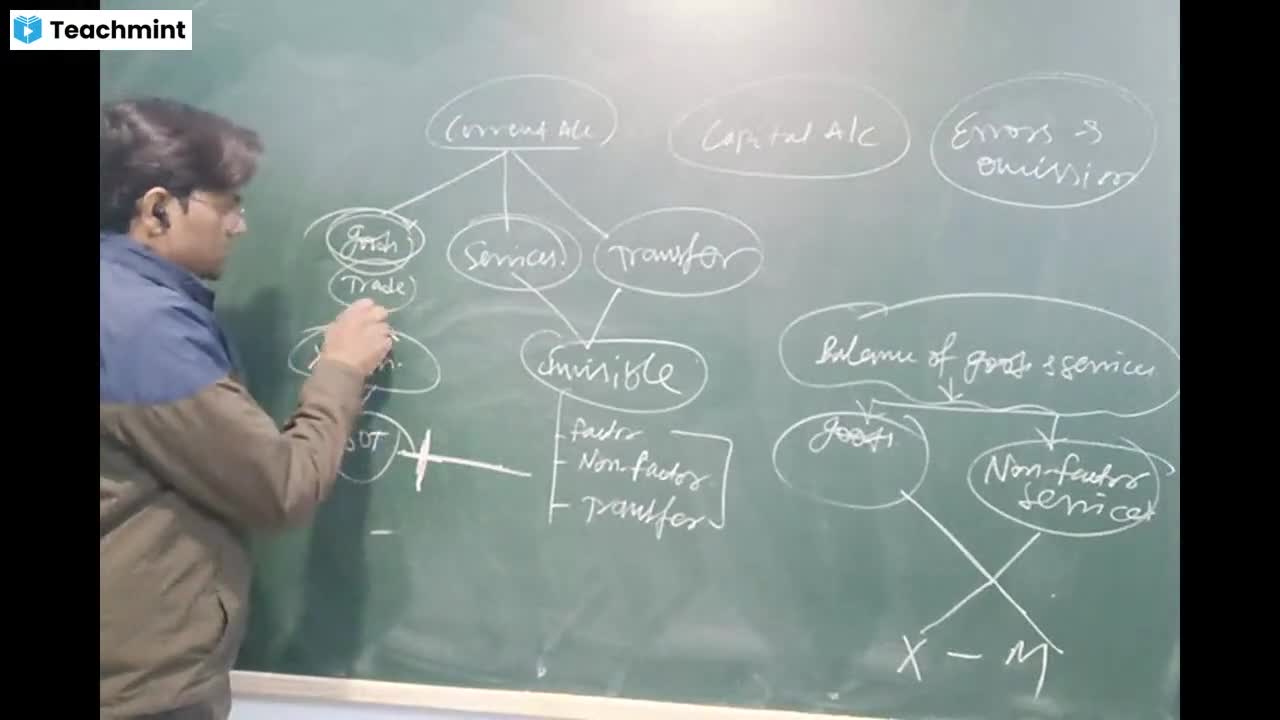 Teachmint
Current A/c
Capital A/c
Errors &
omission
goods
Services
Transfer
Trade
Invisible
Balance of goods & services
factor
Non-factor
Transfer
goods
Non-factor
services
X - M